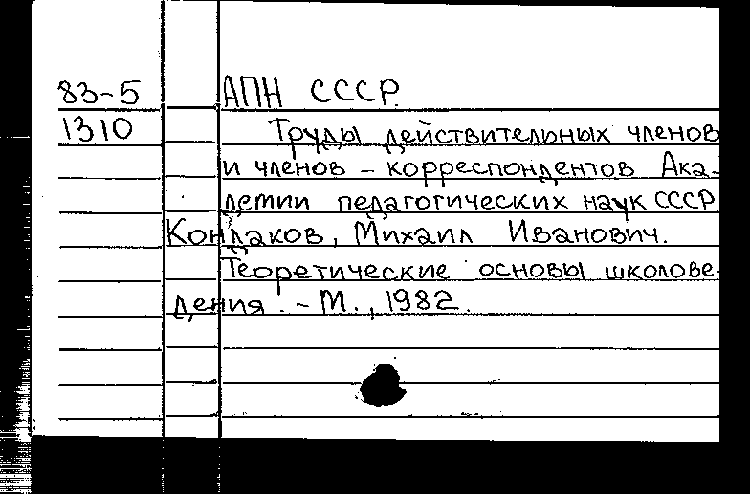 83-5 АПН СССР.
1310 Труды действительных членов
и членов - корреспондентов Ака-
демии педагогических наук СССР
Кондаков, Михаил Иванович.
Теоретические основы школове-
дения. - М., 1982.